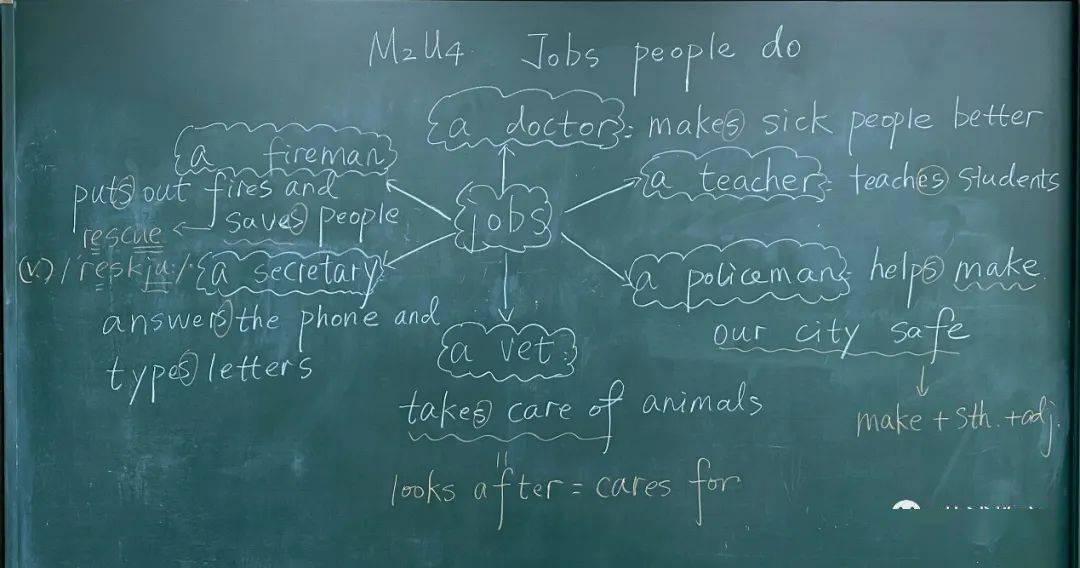 M2U4 Jobs people do
a doctor: makes sick people better
a fireman
puts out fires and
saves people
rescue
(v.) /reskju:/
a teacher: teaches students
jobs
a secretary
answers the phone and
types letters
a policeman: helps make
our city safe
make + sth. + adj.
a vet:
takes care of animals
=
looks after = cares for